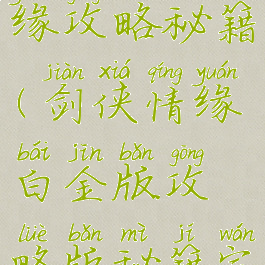 缘攻略秘籍
jiàn xiá qíng yuán
(剑侠情缘
bái jīn bǎn gōng
白金版攻
lüè bǎn mì jí wán
略版秘籍完